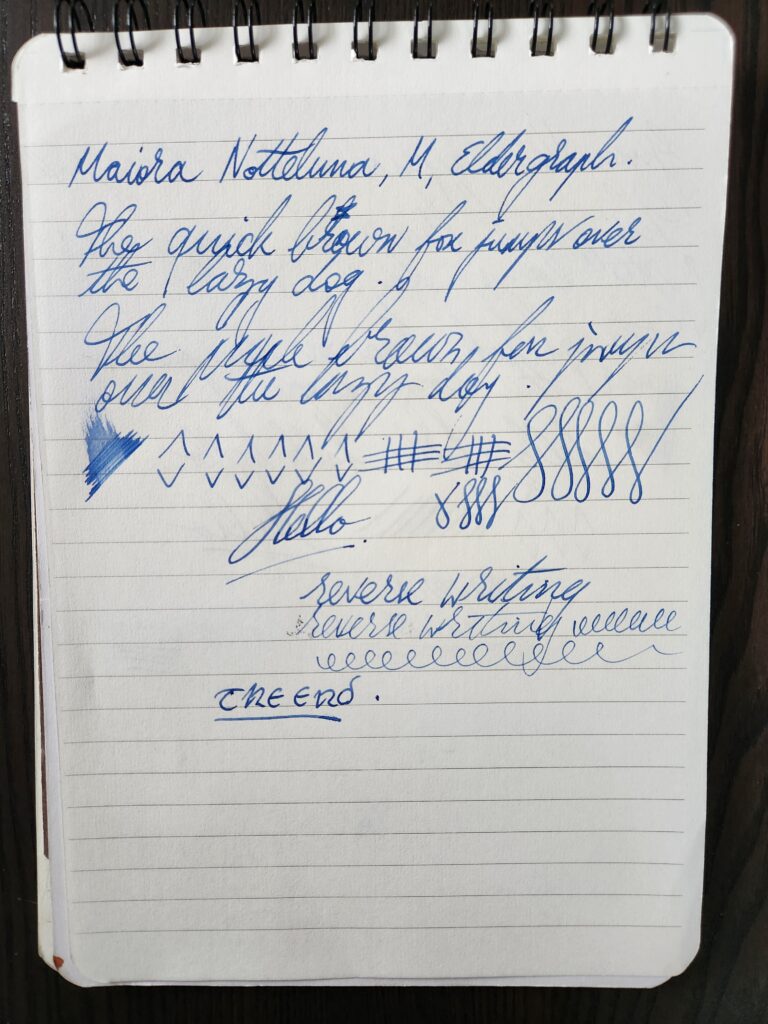 Maiora Notteluna, M, Eldergraph.
The quick brown fox jumps over
the lazy dog.
The quick brown fox jumps
over the lazy dog.
Hello
reverse writing
reverse writing